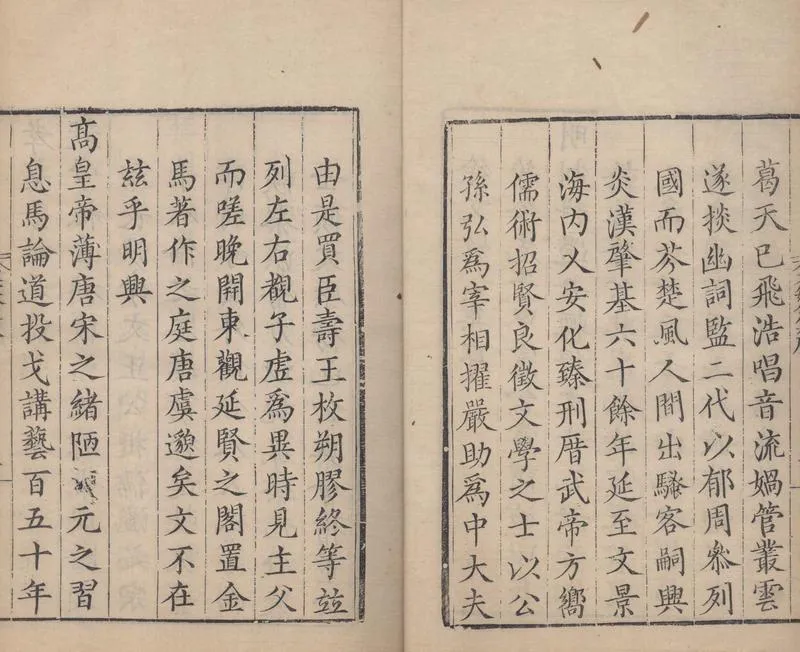 葛天已飛浩唱音流媧管叢雲
遂掞幽詞監二代以郁周叅列
國而芬楚風人間出騷客嗣興
炎漢肇基六十餘年延至文景
海内乂安化臻刑厝武帝方嚮
儒術招賢良徵文學之士以公
孫弘爲宰相擢嚴助爲中大夫
由是買臣壽王枚朔膠終等竝
列左右觀子虛爲異時見主父
而嗟晚開東觀延賢之閣置金
馬著作之庭唐虞邈矣文不在
兹乎明興
高皇帝薄唐宋之緒陋元之習
息馬論道投戈講藝百五十年